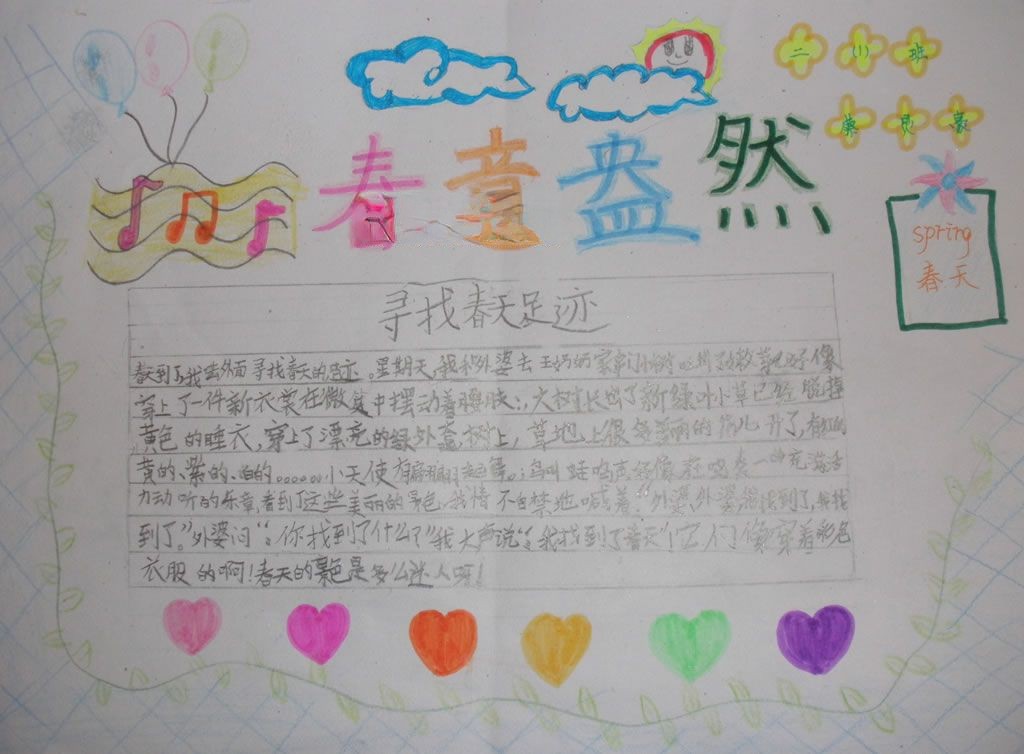 二(1)班
春意盎然
spring
春天
寻找春天足迹
春天到了,我去外面寻找春天的足迹。星期天,我和外婆去王奶奶家串门,小树好像
穿上了一件新衣裳在微风中摆动着腰肢:大树长出了新绿,小草已经脱掉
黄色的睡衣,穿上了漂亮的绿外套,树上,草地上很多美丽的花儿开了,有红的
黄的、紫的、白的。。。。。。小天使有翩翩起舞。;鸟叫蛙鸣声好像在唱奏一曲充满活
力动听的乐章,看到了这些美丽的景色,我情不自禁地喊着:“外婆,外婆我找到了,我找
到了。”外婆问“:你找到了什么?”我大声说“:我找到了春天”!它们像穿着彩色
衣服的啊!春天的景色是多么迷人呀!